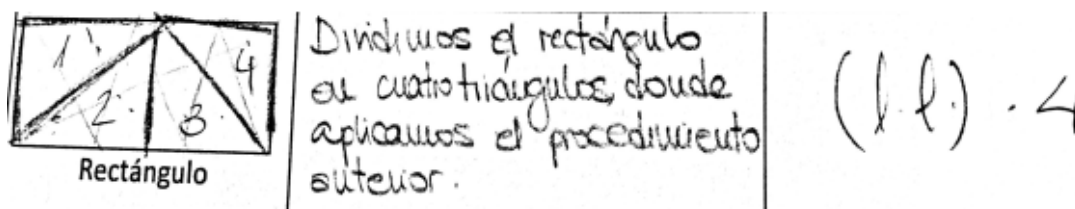 1
2.
3.
4
Rectángulo
Dividimos el rectángulo
en cuatro triángulos, donde
aplicamos el procedimiento
anterior.
(l·l)·4